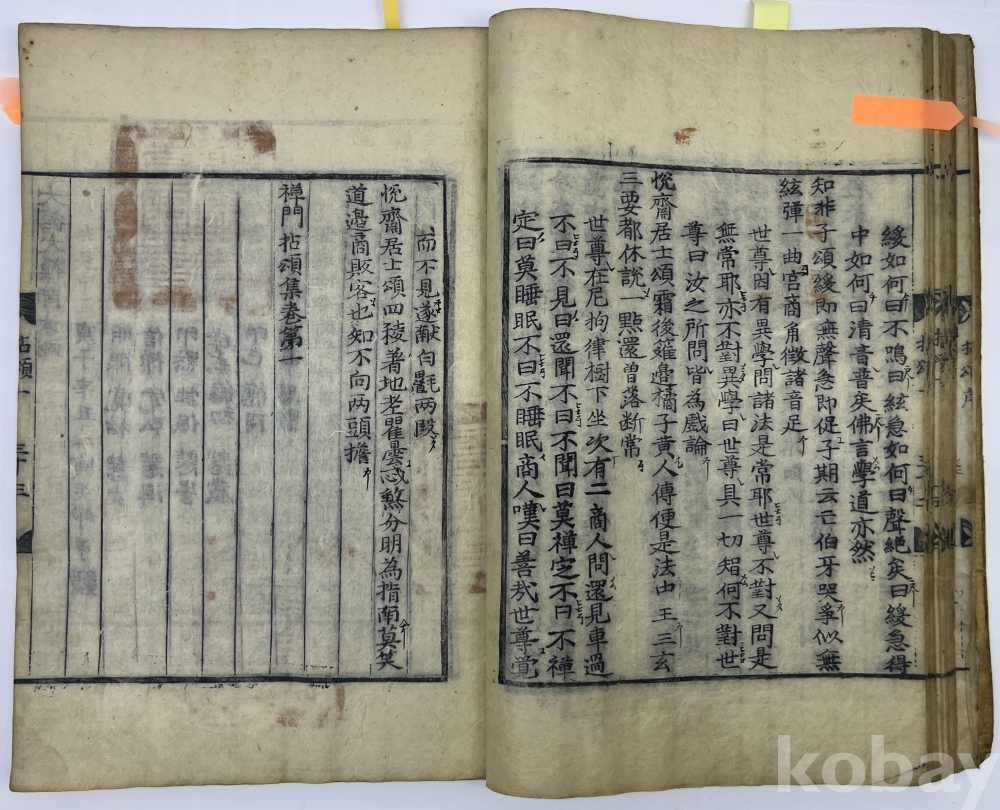 緩如何曰不鳴曰絃急如何曰聲絶矣曰緩急得
中如何曰清音普矣佛言學道亦然
知非子頌緩即無聲急即促子期云亡伯牙哭孚似無
絃彈一曲宮商角徵諸音足
世尊因有異學問諸法是常耶世尊不對又問是
無常耶亦不對異學曰世尊具一切智何不對世
尊曰汝之所問皆為戲論
悅齋居士頌霜後籬邊橘子黃人傳便是法中王三玄
三要都休說一點還曾落斷常
世尊在尼拘律樹下坐次有二商人問還見車過
不曰不見曰還聞不曰不聞曰莫禪定不曰不禪
定曰莫睡眠不曰不睡眠商人嘆曰善哉世尊覺
而不見遂獻白氎兩段
悅齋居士頌四稜著地老瞿曇忒煞分明為指南莫笑
道邊商販客也知不向两頭擔
禪門拈頌集卷第一
kobay